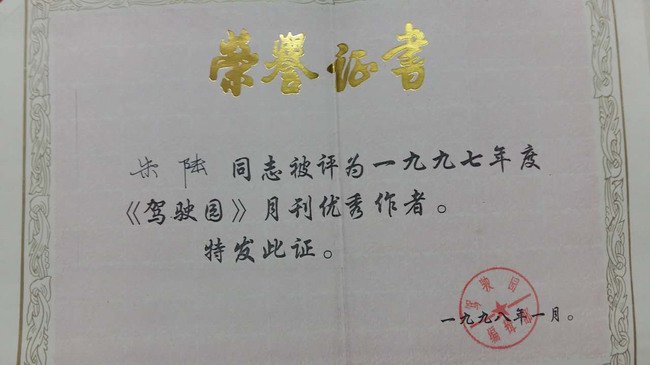 荣誉证书
陆 同志被评为一九九七年度
《驾驶园》月刊优秀作者。
特发此证。
驾驶园
编辑部
一九九八年一月。